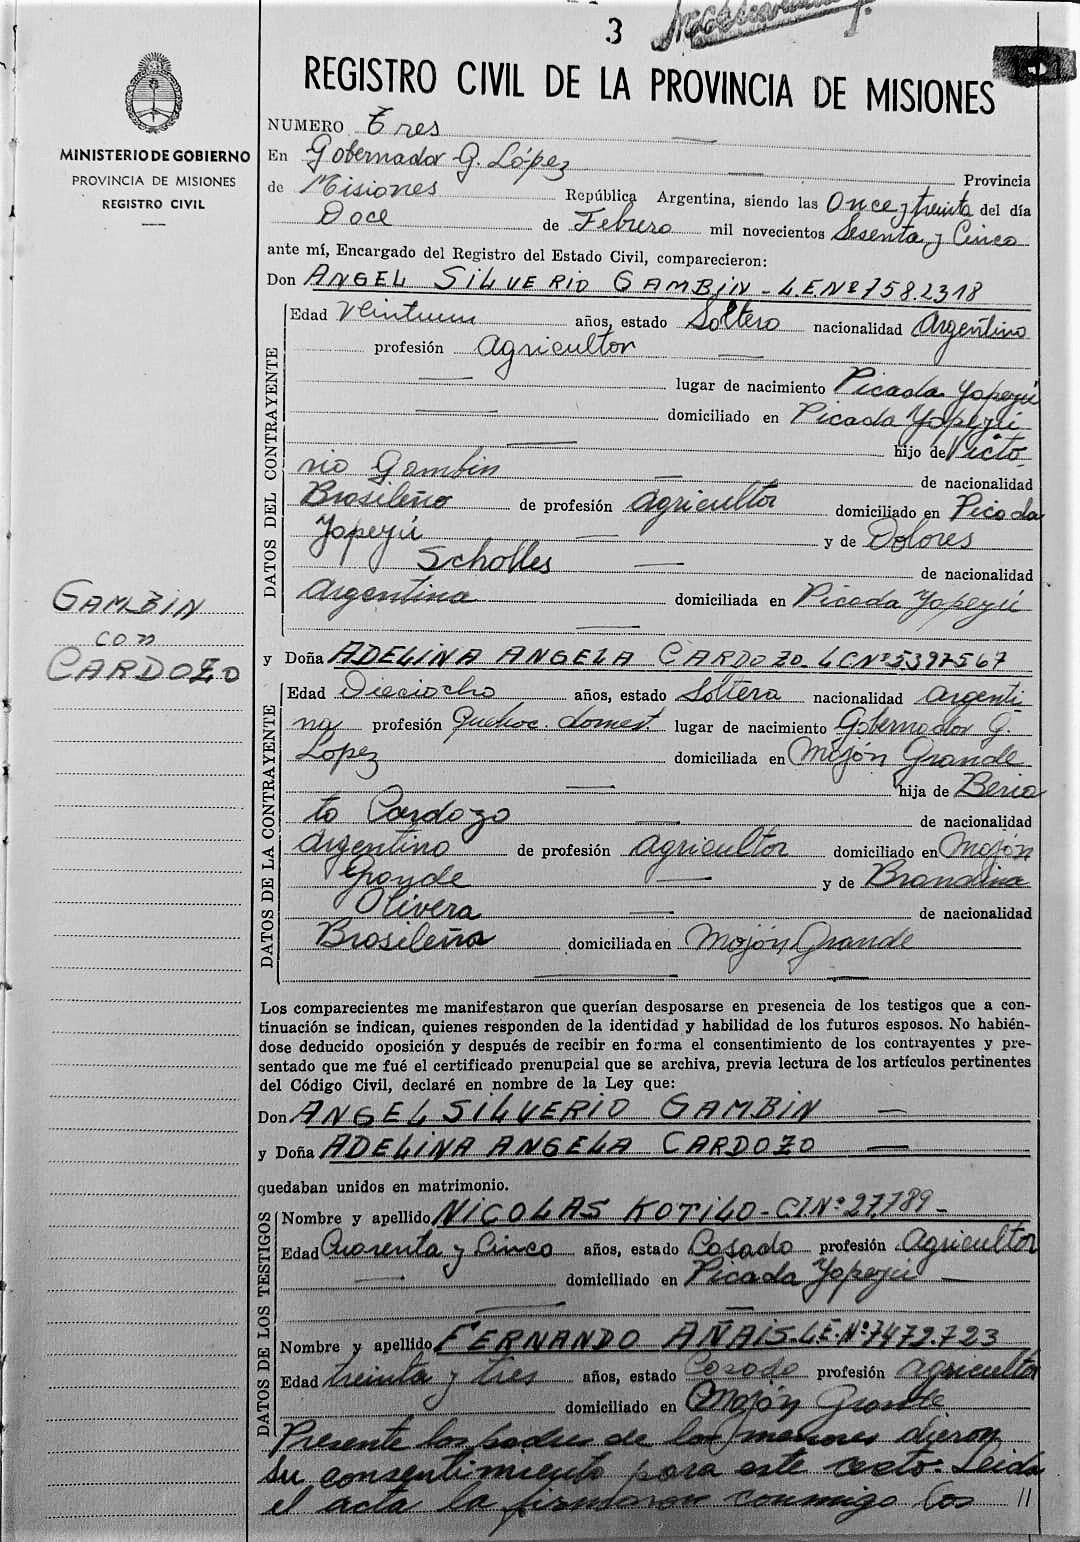 3
REGISTRO CIVIL DE LA PROVINCIA DE MISIONES
MINISTERIO DE GOBIERNO
PROVINCIA DE MISIONES
REGISTRO CIVIL
NUMERO Tres
En Gobernador G. López Provincia
de Misiones República Argentina, siendo las Once y treinta del día
Doce de Febrero mil novecientos Sesenta y Cinco
ante mí, Encargado del Registro del Estado Civil, comparecieron:
Don ANGEL SILVERIO GAMBIN - L.E.Nº 7582.318
DATOS DEL CONTRAYENTE
Edad Veintiun años, estado Soltero nacionalidad Argentino
profesión Agricultor
lugar de nacimiento Picada Yapeyú
domiciliado en Picada Yapeyú
hijo de Victo
rio Gambin de nacionalidad
Brasileño de profesión Agricultor domiciliado en Picada
Yapeyú y de Dolores
Scholles de nacionalidad
Argentina domiciliada en Picada Yapeyú
GAMBIN
con
CARDOZO
y Doña ADELINA ANGELA CARDOZO. LCNº5.397567
DATOS DE LA CONTRAYENTE
Edad Dieciocho años, estado Soltera nacionalidad Argenti
na profesión Quehac. domest. lugar de nacimiento Gobernador G.
López domiciliada en Mojón Grande
hija de Beria
to Cardozo de nacionalidad
Argentino de profesión Agricultor domiciliado en Mojón
Grande y de Brandina
Olivera de nacionalidad
Brasileña domiciliada en Mojón Grande
Los comparecientes me manifestaron que querían desposarse en presencia de los testigos que a con-
tinuación se indican, quienes responden de la identidad y habilidad de los futuros esposos. No habién-
dose deducido oposición y después de recibir en forma el consentimiento de los contrayentes y pre-
sentado que me fué el certificado prenupcial que se archiva, previa lectura de los artículos pertinentes
del Código Civil, declaré en nombre de la Ley que:
Don ANGEL SILVERIO GAMBIN
y Doña ADELINA ANGELA CARDOZO
quedaban unidos en matrimonio.
DATOS DE LOS TESTIGOS
Nombre y apellido NICOLAS KOTILO - CI Nº 27.789 -
Edad Cuarenta y Cinco años, estado Casado profesión Agricultor
domiciliado en Picada Yapeyú
Nombre y apellido FERNANDO AÑAIS. L.E. Nº 7472.723
Edad treinta y tres años, estado Casado profesión agricultor
domiciliado en Mojón Grande
Presente los padres de los menores dieron
su consentimiento para este acto. Leida
el acta la firmaron conmigo los //